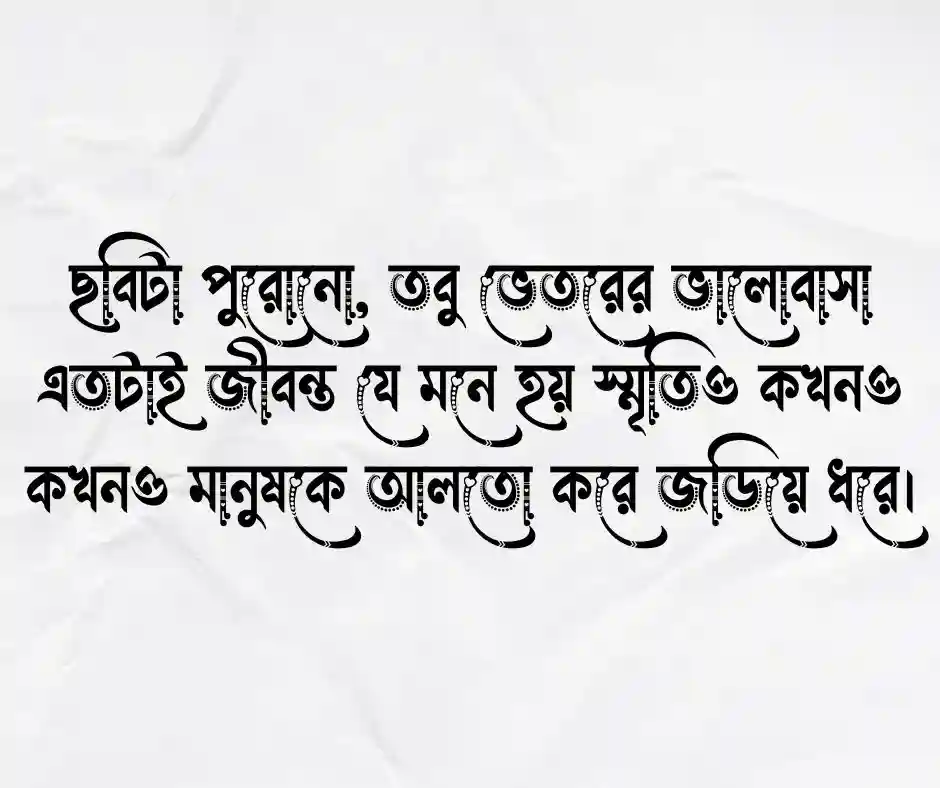 ছবিটা পুরোনো, তবু ভেতরের ভালোবাসা
এতটাই জীবন্ত যে মনে হয় স্মৃতিও কখনও
কখনও মানুষকে আলতো করে জড়িয়ে ধরে।